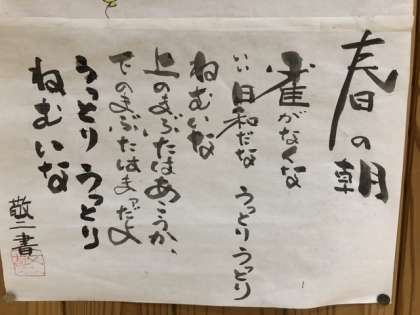 春の朝
雀がなくな
いい日和だな うっとりうっとり
ねむいな
上のまぶたはあこうか、
下のまぶたはまァだよ
うっとり うっとり
ねむいな
敬二書